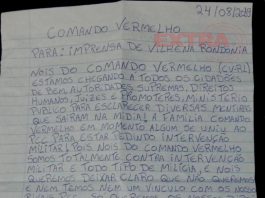 24/08/2018
COMANDO VERMELHO
EXTRA
PARA: IMPRENSA DE VILHENA RONDONIA
NOIS DO COMANDO VERMELHO (CV-RL)
ESTAMOS CHEGANDO A TODOS OS CIDADÕES
DE BEM, AUTORIDADES SUPREMAS, DIREITOS
HUMANO, JUIZES E PROMOTERES, MINISTERIO
PUBLICO PARA ESCLARECER DIVERSAS MENTIRAS
QUE SAIRAM NA MIDIA! A FAMILIA COMANDO
VERMELHO EM MOMENTO ALGUM SE UNIU AO
PCC PARA ESTAR PEDINDO INTERVENÇÃO
MILITAR! POIS NOIS DO COMANDO VERMELHO
SOMOS TOTALMENTE CONTRA INTERVENÇÃO
MILITAR E TODO TIPO DE MILICIA, E NOIS
QUEREMOS DEIXAR CLARO QUE NÃO QUEREMOS
E NEM TEMOS NEM UM VINCULO COM OS NOSSO